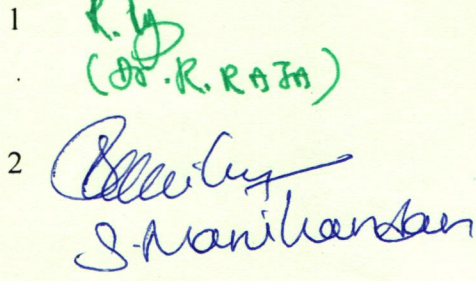 1
(Dr. R. RAJA)
2
S. Manikandan